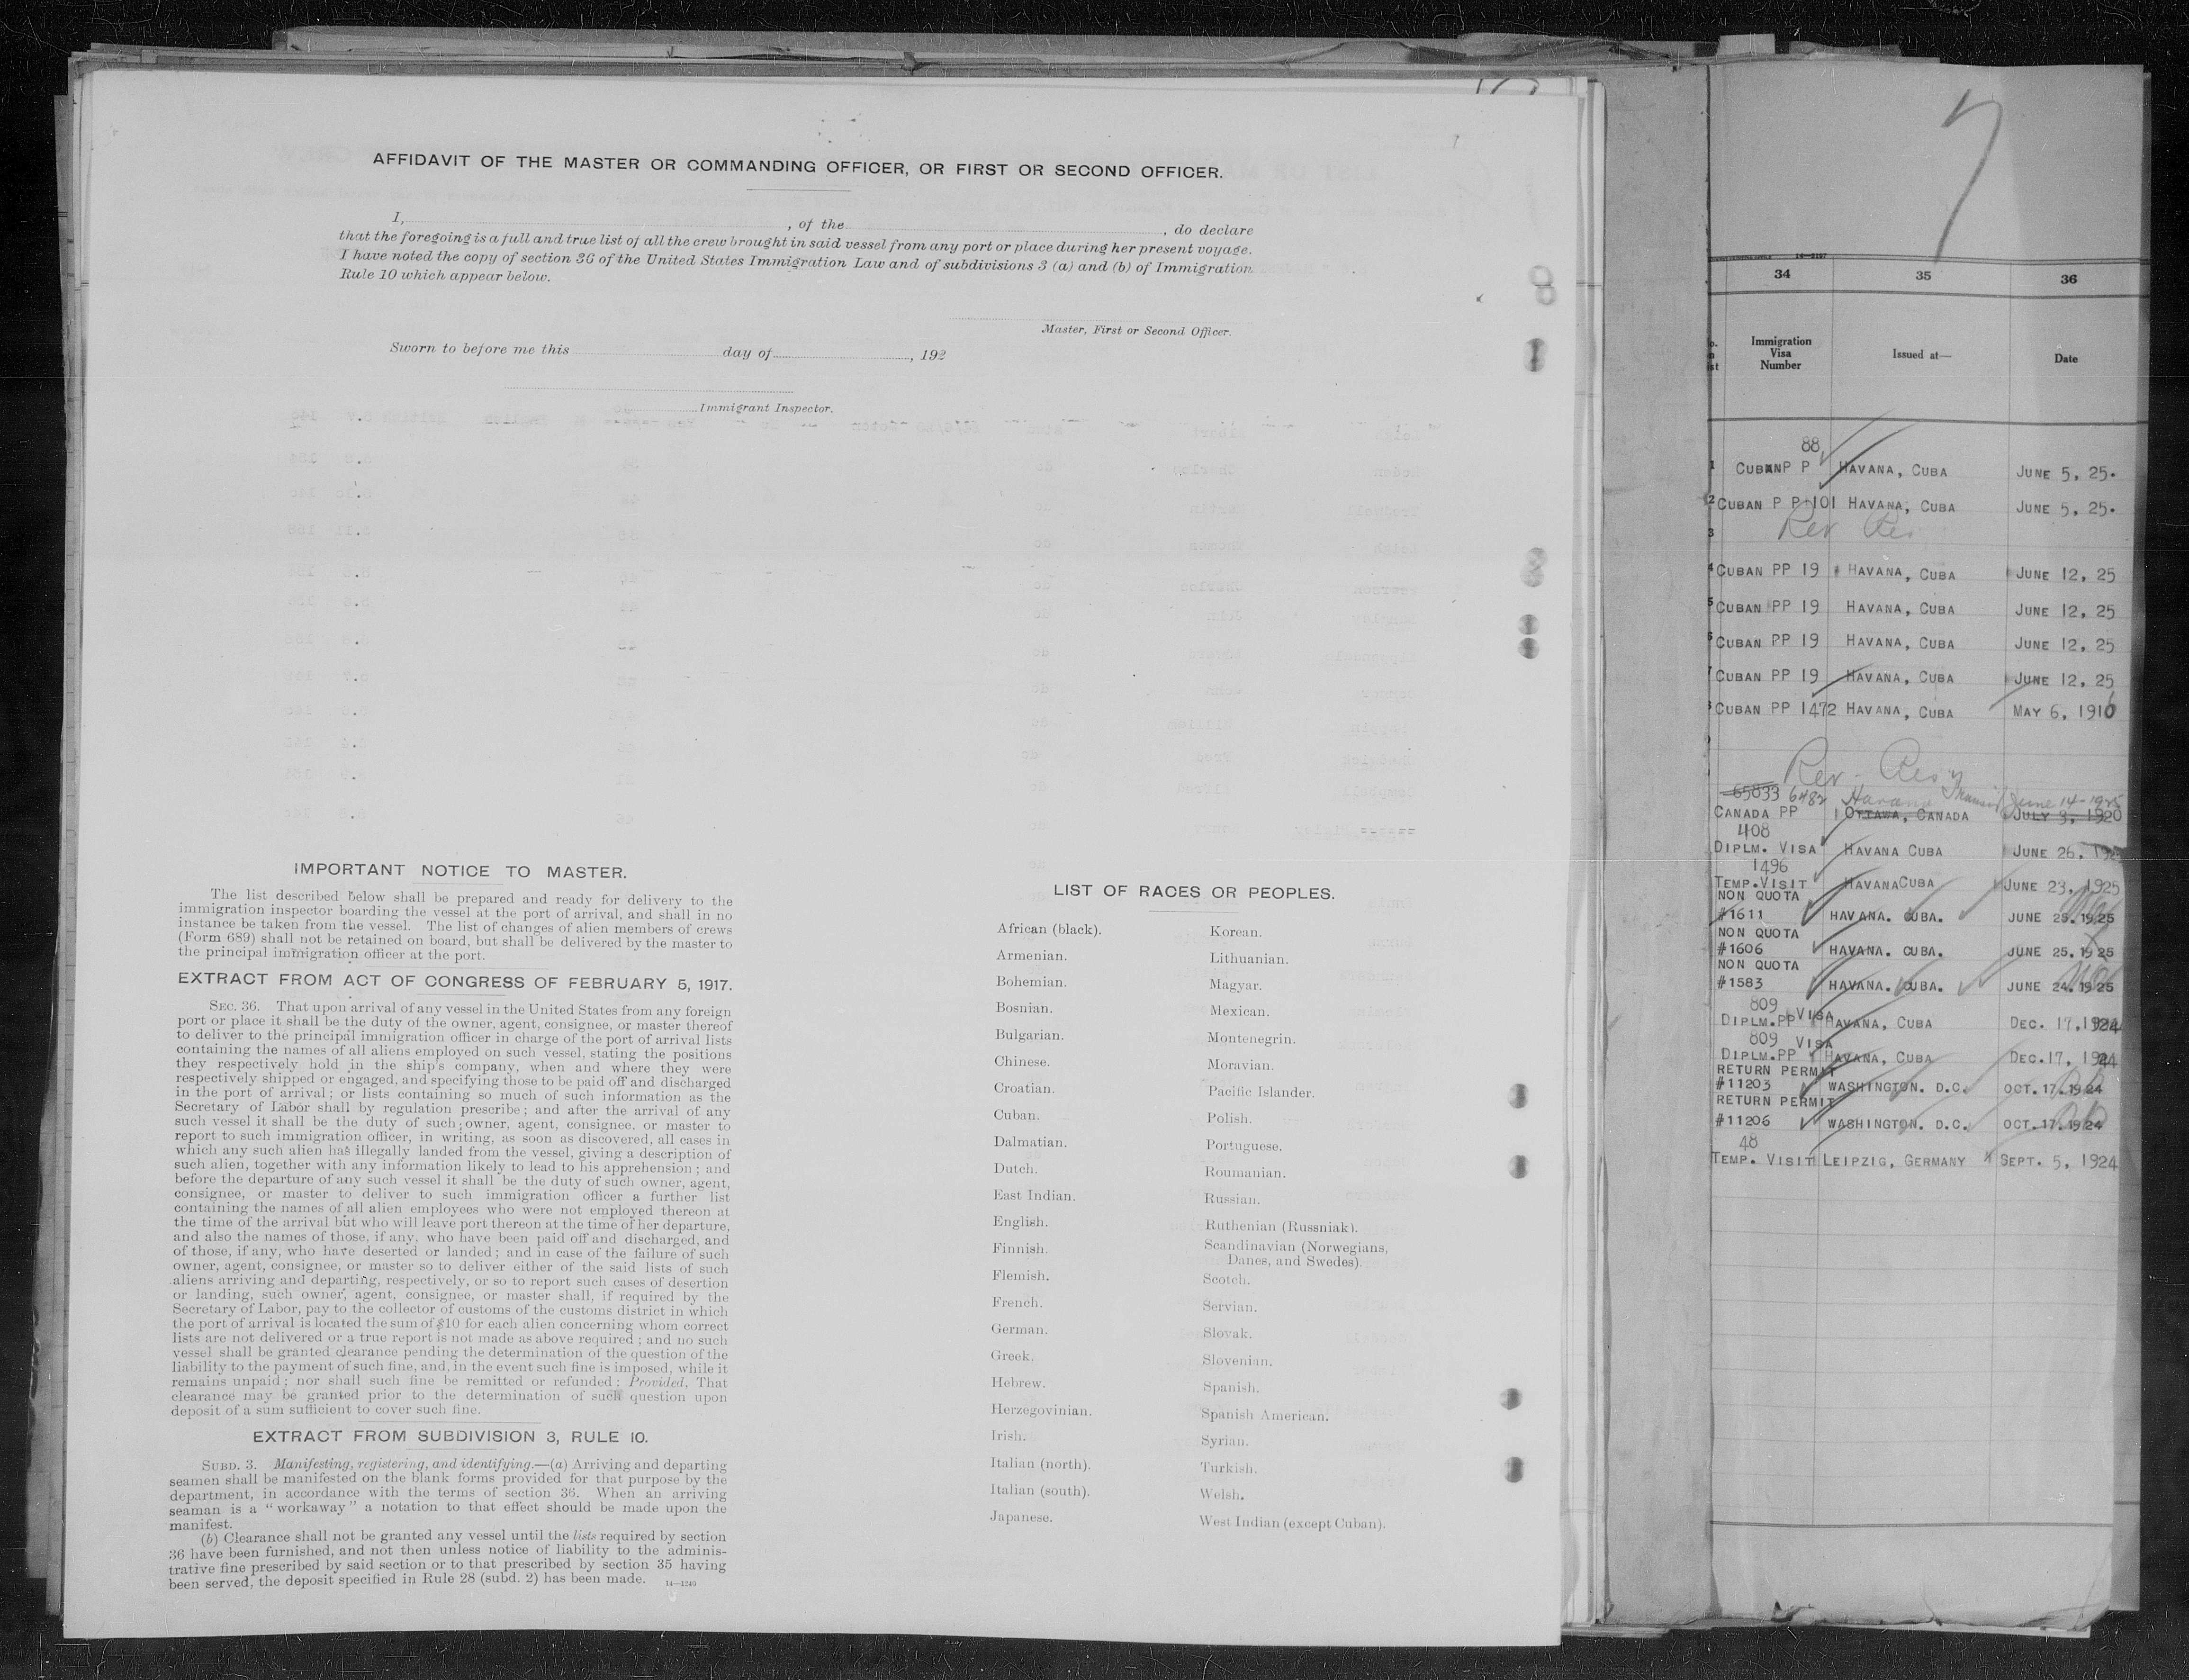 AFFIDAVIT OF THE MASTER OR COMMANDING OFFICER, OR FIRST OR SECOND OFFICER.
I, , of the , do declare
that the foregoing is a full and true list of all the crew brought in said vessel from any port or place during her present voyage.
I have noted the copy of section 36 of the United States Immigration Law and of subdivisions 3 (a) and (b) of Immigration
Rule 10 which appear below.
Master, First or Second Officer.
Sworn to before me this day of , 192
Immigrant Inspector.
IMPORTANT NOTICE TO MASTER.
The list described below shall be prepared and ready for delivery to the
immigration inspector boarding the vessel at the port of arrival, and shall in no
instance be taken from the vessel. The list of changes of alien members of crews
(Form 689) shall not be retained on board, but shall be delivered by the master to
the principal immigration officer at the port.
EXTRACT FROM ACT OF CONGRESS OF FEBRUARY 5, 1917.
SEC. 36. That upon arrival of any vessel in the United States from any foreign
port or place it shall be the duty of the owner, agent, consignee, or master thereof
to deliver to the principal immigration officer in charge of the port of arrival lists
containing the names of all aliens employed on such vessel, stating the positions
they respectively hold in the ship's company, when and where they were
respectively shipped or engaged, and specifying those to be paid off and discharged
in the port of arrival; or lists containing so much of such information as the
Secretary of Labor shall by regulation prescribe; and after the arrival of any
such vessel it shall be the duty of such owner, agent, consignee, or master to
report to such immigration officer, in writing, as soon as discovered, all cases in
which any such alien has illegally landed from the vessel, giving a description of
such alien, together with any information likely to lead to his apprehension; and
before the departure of any such vessel it shall be the duty of such owner, agent,
consignee, or master to deliver to such immigration officer a further list
containing the names of all alien employees who were not employed thereon at
the time of the arrival but who will leave port thereon at the time of her departure,
and also the names of those, if any, who have been paid off and discharged, and
of those, if any, who have deserted or landed; and in case of the failure of such
owner, agent, consignee, or master so to deliver either of the said lists of such
aliens arriving and departing, respectively, or so to report such cases of desertion
or landing, such owner, agent, consignee, or master shall, if required by the
Secretary of Labor, pay to the collector of customs of the customs district in which
the port of arrival is located the sum of $10 for each alien concerning whom correct
lists are not delivered or a true report is not made as above required; and no such
vessel shall be granted clearance pending the determination of the question of the
liability to the payment of such fine, and, in the event such fine is imposed, while it
remains unpaid; nor shall such fine be remitted or refunded: Provided, That
clearance may be granted prior to the determination of such question upon
deposit of a sum sufficient to cover such fine.
EXTRACT FROM SUBDIVISION 3, RULE 10.
SUBD. 3. Manifesting, registering, and identifying.—(a) Arriving and departing
seamen shall be manifested on the blank forms provided for that purpose by the
department, in accordance with the terms of section 36. When an arriving
seaman is a "workaway" a notation to that effect should be made upon the
manifest.
(b) Clearance shall not be granted any vessel until the lists required by section
36 have been furnished, and not then unless notice of liability to the adminis-
trative fine prescribed by said section or to that prescribed by section 35 having
been served, the deposit specified in Rule 28 (subd. 2) has been made. 14—1240
LIST OF RACES OR PEOPLES.
African (black).
Armenian.
Bohemian.
Bosnian.
Bulgarian.
Chinese.
Croatian.
Cuban.
Dalmatian.
Dutch.
East Indian.
English.
Finnish.
Flemish.
French.
German.
Greek.
Hebrew.
Herzegovinian.
Irish.
Italian (north).
Italian (south).
Japanese.
Korean.
Lithuanian.
Magyar.
Mexican.
Montenegrin.
Moravian.
Pacific Islander.
Polish.
Portuguese.
Roumanian.
Russian.
Ruthenian (Russniak).
Scandinavian (Norwegians,
Danes, and Swedes).
Scotch.
Servian.
Slovak.
Slovenian.
Spanish.
Spanish American.
Syrian.
Turkish.
Welsh.
West Indian (except Cuban).
7
34 35 36
Immigration Visa Number Issued at— Date
88
1 CUBAN P P HAVANA, CUBA JUNE 5, 25.
2 CUBAN P P 101 HAVANA, CUBA JUNE 5, 25.
3 Rev Res
4 CUBAN PP 19 HAVANA, CUBA JUNE 12, 25
5 CUBAN PP 19 HAVANA, CUBA JUNE 12, 25
6 CUBAN PP 19 HAVANA, CUBA JUNE 12, 25
7 CUBAN PP 19 HAVANA, CUBA JUNE 12, 25
CUBAN PP 1472 HAVANA, CUBA MAY 6, 1916
Rev. Res
65833 6482 Havana Transit June 14-1925
CANADA PP OTTAWA, CANADA JULY 3, 1920
408
DIPLM. VISA HAVANA CUBA JUNE 26,
1496
TEMP. VISIT HAVANA CUBA JUNE 23, 1925
NON QUOTA
#1611 HAVANA. CUBA. JUNE 25. 1925
NON QUOTA
#1606 HAVANA. CUBA. JUNE 25. 1925
NON QUOTA
#1583 HAVANA. CUBA. JUNE 24. 1925
809 VISA
DIPLM. PP HAVANA, CUBA DEC. 17, 1924
809 VISA
DIPLM. PP HAVANA, CUBA DEC. 17, 1924
RETURN PERMIT
#11203 WASHINGTON. D.C. OCT. 17. 1924
RETURN PERMIT
#11206 WASHINGTON. D.C. OCT. 17. 1924
48
TEMP. VISIT LEIPZIG, GERMANY SEPT. 5, 1924